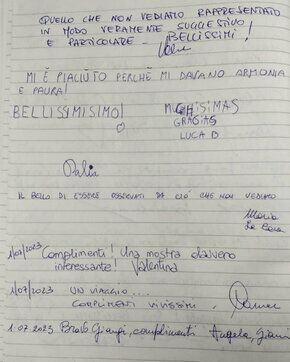 QUELLO CHE NON VEDIAMO RAPPRESENTATO
IN MODO VERAMENTE SUGGESTIVO
E PARTICOLARE - BELLISSIMI!
MI È PIACIUTO PERCHÉ MI DAVANO ARMONIA
E PAURA!
BELLISSIMISIMO!
MUCHISIMAS
GRACIAS
LUCA B
IL BELLO DI ESSERE OSSERVATI DA CIÒ CHE NON VEDIAMO
Maria
1/07/2023 Complimenti! Una mostra davvero
interessante! Valentina
1/07/2023 UN VIAGGIO....
COMPLIMENTI VIVISSIMI
1.07.2023 Bravo complimenti Angela,